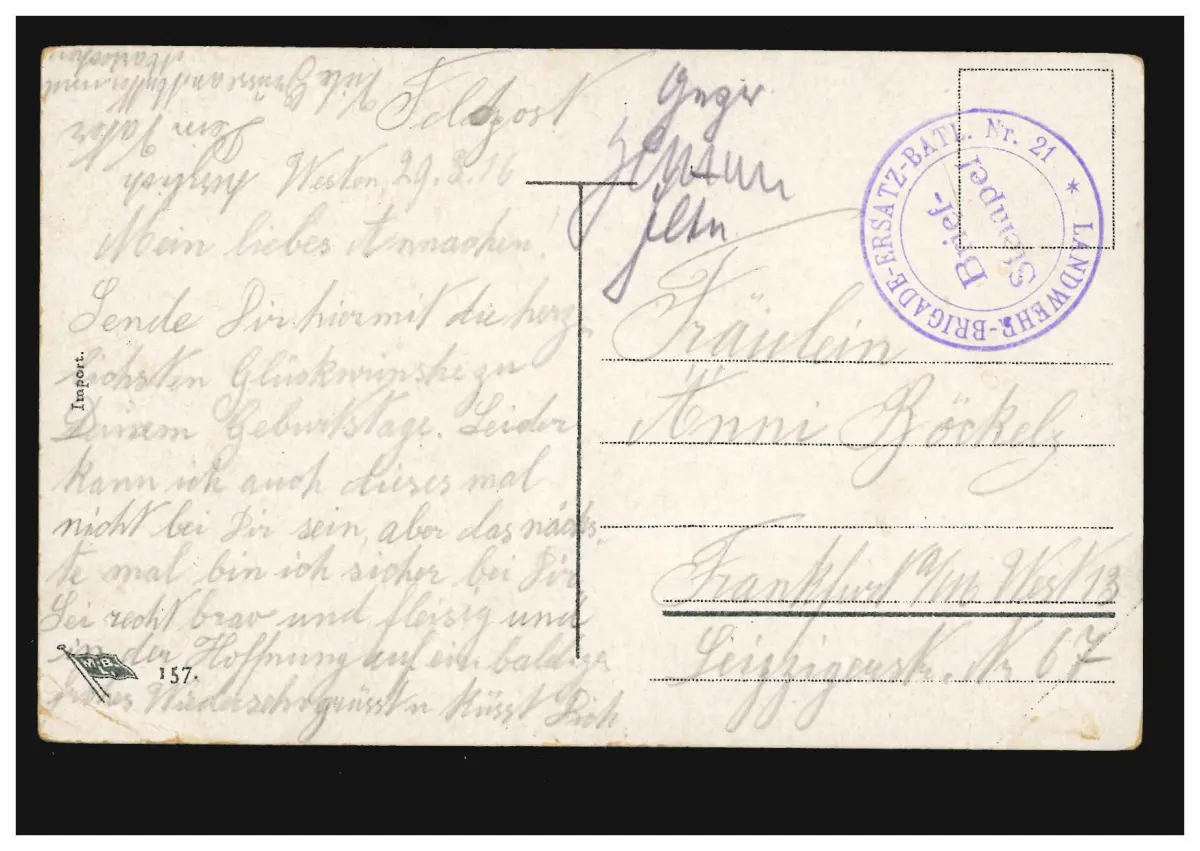 Feldpost
Weston, 29.8.16
Mein liebes Annachen!
Sende Dir hiermit die herz-
lichsten Gluckwünshe zu
Deinem Geburtstage. Leider
kann ich auch dieses mal
nicht bei Dir sein, aber das nächs-
te mal bin ich sicher bei Dir
Sei recht brav und fleisig und
in der Hoffnung auf ein baldiges
Wiedersehn grüsst u küsst Dich
herzlich
Dein Vater
Viele Grüsse an
Gepr.
LANDWEHR-BRIGADE-ERSATZ-BATL. Nr. 21 *
Brief-
Stempel
Fräulein
Änni Böckelz
Frankfurt a/M West 13
Leipzigerstr. Nr 67
Import.
M B
157.